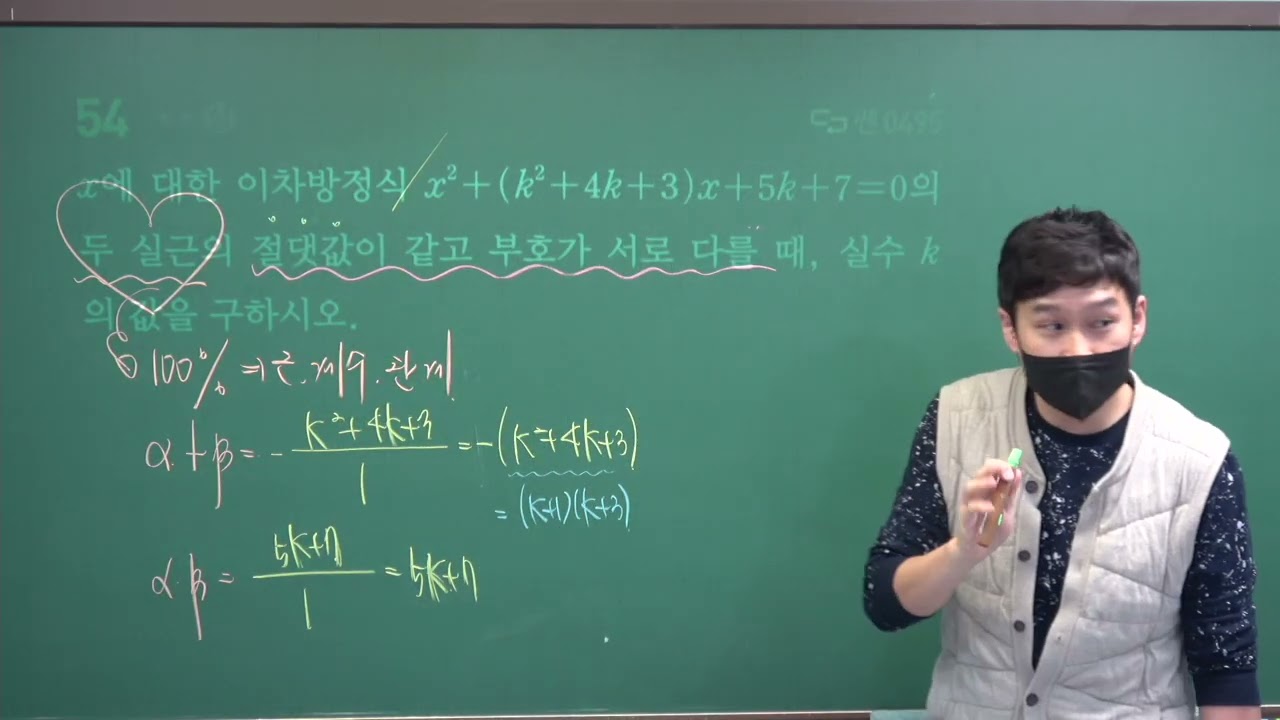 54
쎈 0495
x에 대한 이차방정식 x²+(k²+4k+3)x+5k+7=0의
두 실근의 절댓값이 같고 부호가 서로 다를 때, 실수 k
의 값을 구하시오.
100% ⇒ 근.계수.관계
α+β = - k²+4k+3 / 1 = -(k²+4k+3)
= (k+1)(k+3)
α.β = 5k+7 / 1 = 5k+7